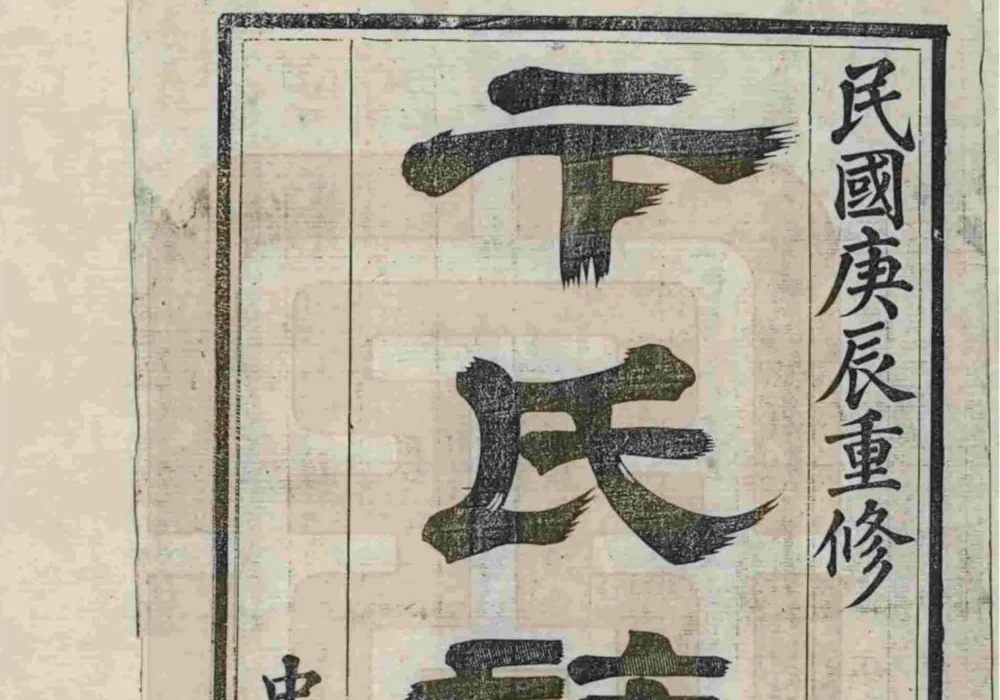 民國庚辰重修
卞氏